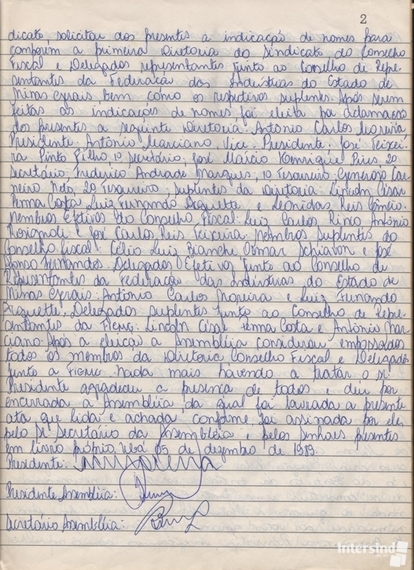 2
dicato solicitou dos presentes a indicação de nomes para
comporem a primeira Diretoria do Sindicato do Conselho
Fiscal e Delegados representantes junto ao Conselho de Repre-
sentantes da Federação das Indústrias do Estado de
Minas Gerais, bem como os respetivos suplentes. Após serem
feitas as indicações de nomes foi eleita por aclamação
dos presentes a seguinte Diretoria: Antônio Carlos Moreira
Presidente: Antônio Marciano, Vice Presidente: José Teixei-
ra Pinto Filho, 1º Secretário, José Maião Henrique Pires, 2º
Secretário, Frederico Andrade Marques, 1º Tesoureiro, Generoso Car-
neiro Neto, 2º Tesoureiro, Suplentes da Diretoria: Lincoln César
Lima Costa, Luiz Fernando e Leonidas Reis
Membros Efetivos do Conselho Fiscal: Luiz Carlos Antônio
e José Carlos Reis Teixeira Membros Suplentes do
Conselho Fiscal: Célio Luiz Bianchi, Osmar Schiavon e José
Fernandes. Delegados Efetivos junto ao Conselho de
Representantes da Federação das Indústrias do Estado de
Minas Gerais: Antonio Carlos Moreira e Luiz Fernando
Delegados suplentes junto ao Conselho de Repre-
sentantes da Fiemg: Lincoln César Lima Costa e Antônio Mar-
ciano. Após a eleição a Assembléia considerou empossados
todos os membros da Diretoria Conselho Fiscal e Delegados
junto a Fiemg. Nada mais havendo a tratar o Sr.
Presidente agradeceu a presença de todos e deu por
encerrada a Assembléia da qual foi lavrada a presente
ata que lida e achada conforme foi assinada por ele
pelo Sr. Secretário da Assembléia e pelos senhores presentes
em livro próprio. de dezembro de 1989.
Presidente:
Presidente Assembléia:
Secretário Assembléia:
Intersind